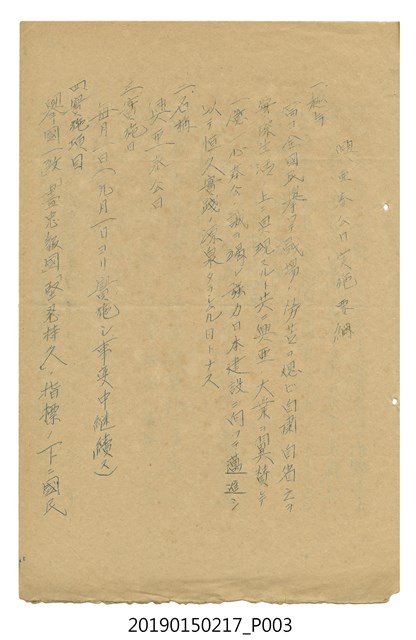 興亜奉公日実施要綱
一、趣旨
全国民挙ッテ戦場ノ労苦ヲ偲ビ自粛自省之ヲ
実際生活ノ上ニ具現スルト共ニ興亜ノ大業ヲ翼賛シテ
一億一心奉公ノ誠ヲ効シ強力日本建設ニ向ッテ邁進シ
以テ恒久実践ノ源泉タラシムル日トナス
二、名称
興亜奉公日
三、実施日
毎月一日(九月一日ヨリ実施シ事変中継続ス)
四、実施項目
挙国一致「尽忠報国」「堅忍持久」ノ指標ノ下ニ国民
20190150217_P003